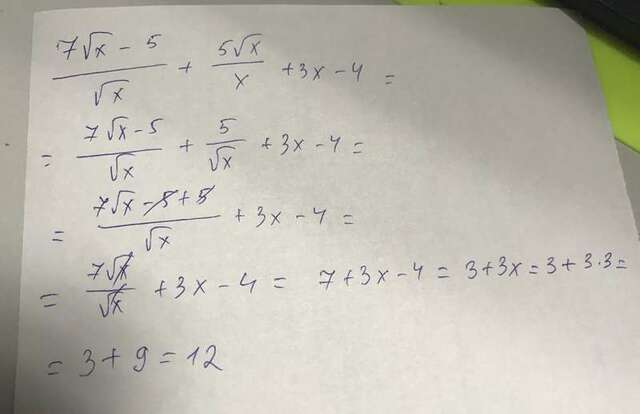 (7√x - 5)/√x + 5√x/x + 3x - 4 =
= (7√x - 5)/√x + 5/√x + 3x - 4 =
= (7√x - 5 + 5)/√x + 3x - 4 =
= 7√x/√x + 3x - 4 = 7 + 3x - 4 = 3 + 3x = 3 + 3·3 =
= 3 + 9 = 12